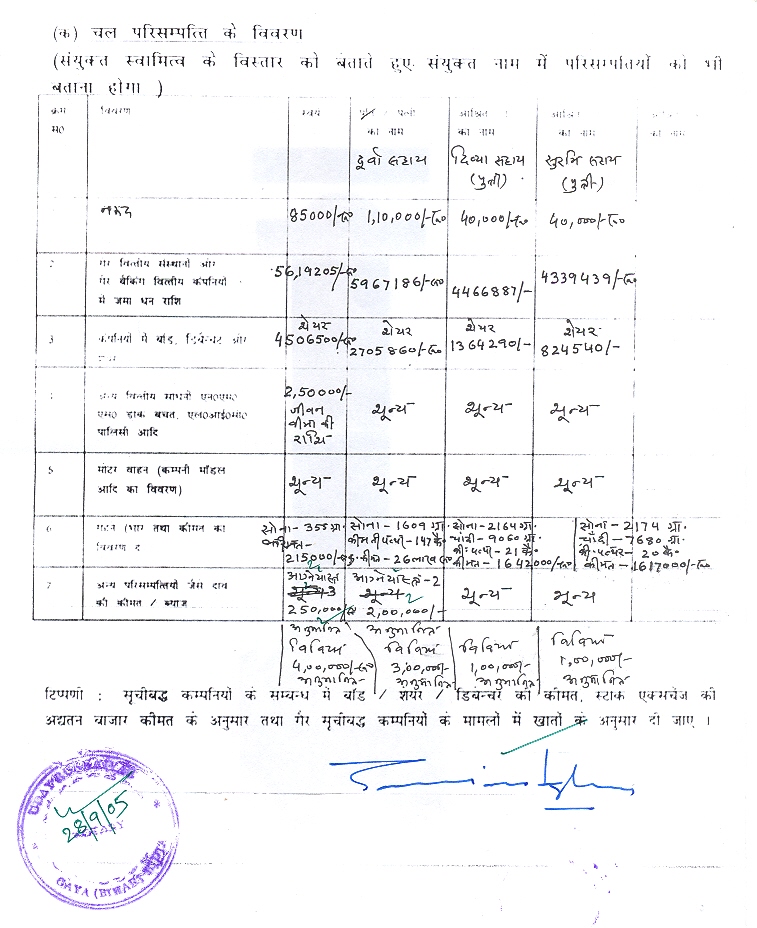 (क) चल परिसम्पत्ति के विवरण
(संयुक्त स्वामित्व के विस्तार को बताते हुए संयुक्त नाम में परिसम्पतियों को भी
बताना होगा )
क्रम सं० विवरण स्वयं पति / पत्नी का नाम आश्रित का नाम आश्रित का नाम का नाम
दूर्वा सहाय दिव्या सहाय (पुत्री) सुरभि सहाय (पुत्री)
नकद 85000/-रु० 1,10,000/-रु० 40,000/-रु० 40,000/-रु०
2 गैर वित्तीय संस्थानों और गैर बैंकिंग वित्तीय कंपनियों में जमा धन राशि 56,19205/-रु० 5967186/-रु० 4466887/- 4339439/-रु०
3 कंपनियों में बांड, डिबेन्चर और शेयर 4506500/-रु० शेयर 2705860/-रु० शेयर 1364290/- शेयर 824540/-
अन्य वित्तीय साधनों एन०एस० एस० डाक बचत, एल०आई०सी० पालिसी आदि 2,50000/- जीवन बीमा की राशि शून्य शून्य शून्य
5 मोटर वाहन (कम्पनी मॉडल आदि का विवरण) शून्य शून्य शून्य शून्य
6 (भार तथा कीमत का विवरण दें सोना-355 ग्रा० 215000/- सोना-1609 ग्रा० कीमती पत्थर-147 कै० 26 लाख रु० सोना-2164 ग्रा० चांदी-9060 ग्रा० की० पत्थर-21 कै० कीमत-1642000/-रु० सोना-2174 ग्रा० चांदी-7680 ग्रा० की० पत्थर-20 कै० कीमत-1617000/-रु०
7 अन्य परिसम्पत्तियों जैसे दावे की कीमत / ब्याज आग्नेयास्त्र 250,000/- अनुमानित आग्नेयास्त्र-2 2,00,000/- अनुमानित शून्य शून्य
विविध 4,00,000/-रु० अनुमानित विविध 3,00,000/- अनुमानित विविध 1,00,000/- अनुमानित विविध 1,00,000/- अनुमानित
टिप्पणी : सूचीबद्ध कम्पनियों के सम्बन्ध में बांड / शेयर / डिबेन्चर की कीमत, स्टाक एक्सचेंज की
अद्यतन बाजार कीमत के अनुसार तथा गैर सूचीबद्ध कम्पनियों के मामलों में खातों के अनुसार दी जाए ।
28/9/05
GAYA (BIHAR)